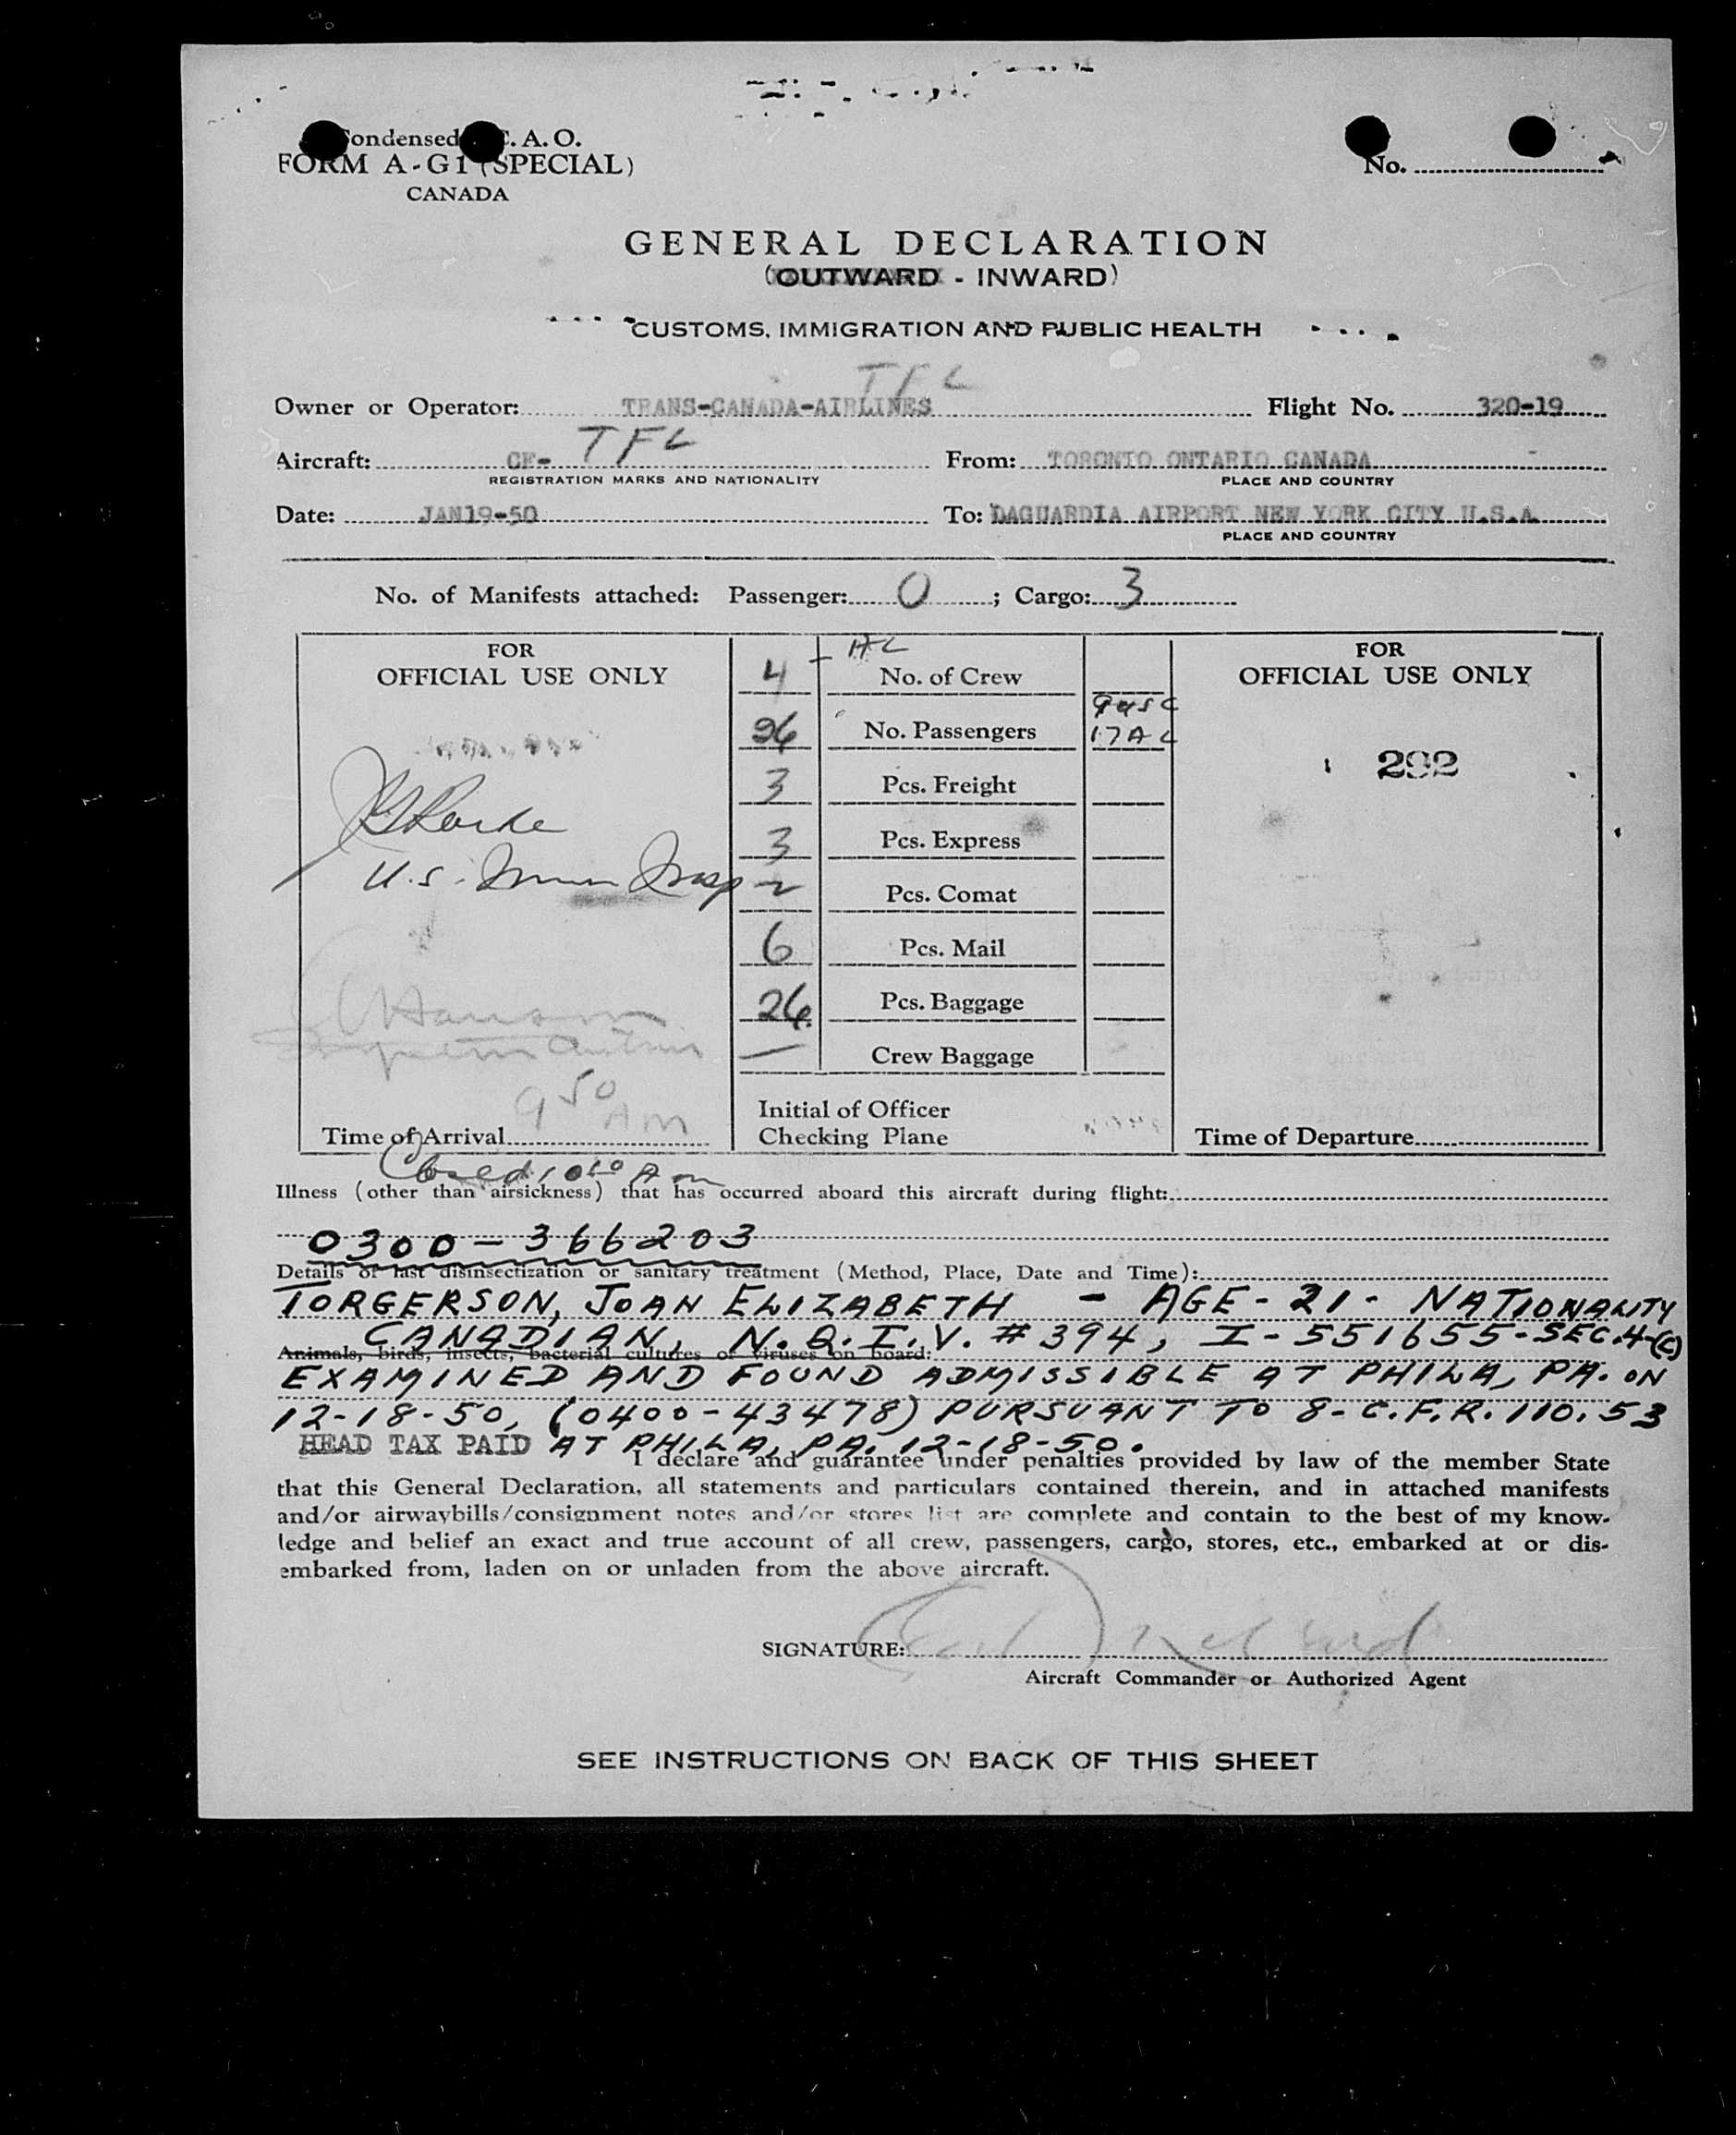 Condensed I.C.A.O.
FORM A-G1 (SPECIAL)
CANADA
No.
GENERAL DECLARATION
(OUTWARD - INWARD)
CUSTOMS, IMMIGRATION AND PUBLIC HEALTH
TFL
Owner or Operator: TRANS-CANADA-AIRLINES Flight No. 320-19
Aircraft: CF- TFL From: TORONTO ONTARIO CANADA
REGISTRATION MARKS AND NATIONALITY PLACE AND COUNTRY
Date: JAN19-50 To: DAGUARDIA AIRPORT NEW YORK CITY U.S.A.
PLACE AND COUNTRY
No. of Manifests attached: Passenger: 0 ; Cargo: 3
FOR
OFFICIAL USE ONLY
U.S. Immn Insp
9 50 AM
Time of Arrival
4 - AC No. of Crew
26 No. Passengers 9 USC
17 AC
3 Pcs. Freight
3 Pcs. Express
Pcs. Comat
6 Pcs. Mail
26 Pcs. Baggage
— Crew Baggage
Initial of Officer
Checking Plane
FOR
OFFICIAL USE ONLY
292
Time of Departure
Illness (other than airsickness) that has occurred aboard this aircraft during flight:
0300-366203
Details of last disinsectization or sanitary treatment (Method, Place, Date and Time):
TORGERSON, JOAN ELIZABETH - AGE-21- NATIONALITY
CANADIAN, N.Q.I.V. #394, I-551655-SEC.4-(C)
Animals, birds, insects, bacterial cultures or viruses on board:
EXAMINED AND FOUND ADMISSIBLE AT PHILA, PA. ON
12-18-50, (0400-43478) PURSUANT TO 8-C.F.R. 110.53
HEAD TAX PAID AT PHILA, PA. 12-18-50.
I declare and guarantee under penalties provided by law of the member State
that this General Declaration, all statements and particulars contained therein, and in attached manifests
and/or airwaybills/consignment notes and/or stores list are complete and contain to the best of my know-
ledge and belief an exact and true account of all crew, passengers, cargo, stores, etc., embarked at or dis-
embarked from, laden on or unladen from the above aircraft.
SIGNATURE:
Aircraft Commander or Authorized Agent
SEE INSTRUCTIONS ON BACK OF THIS SHEET